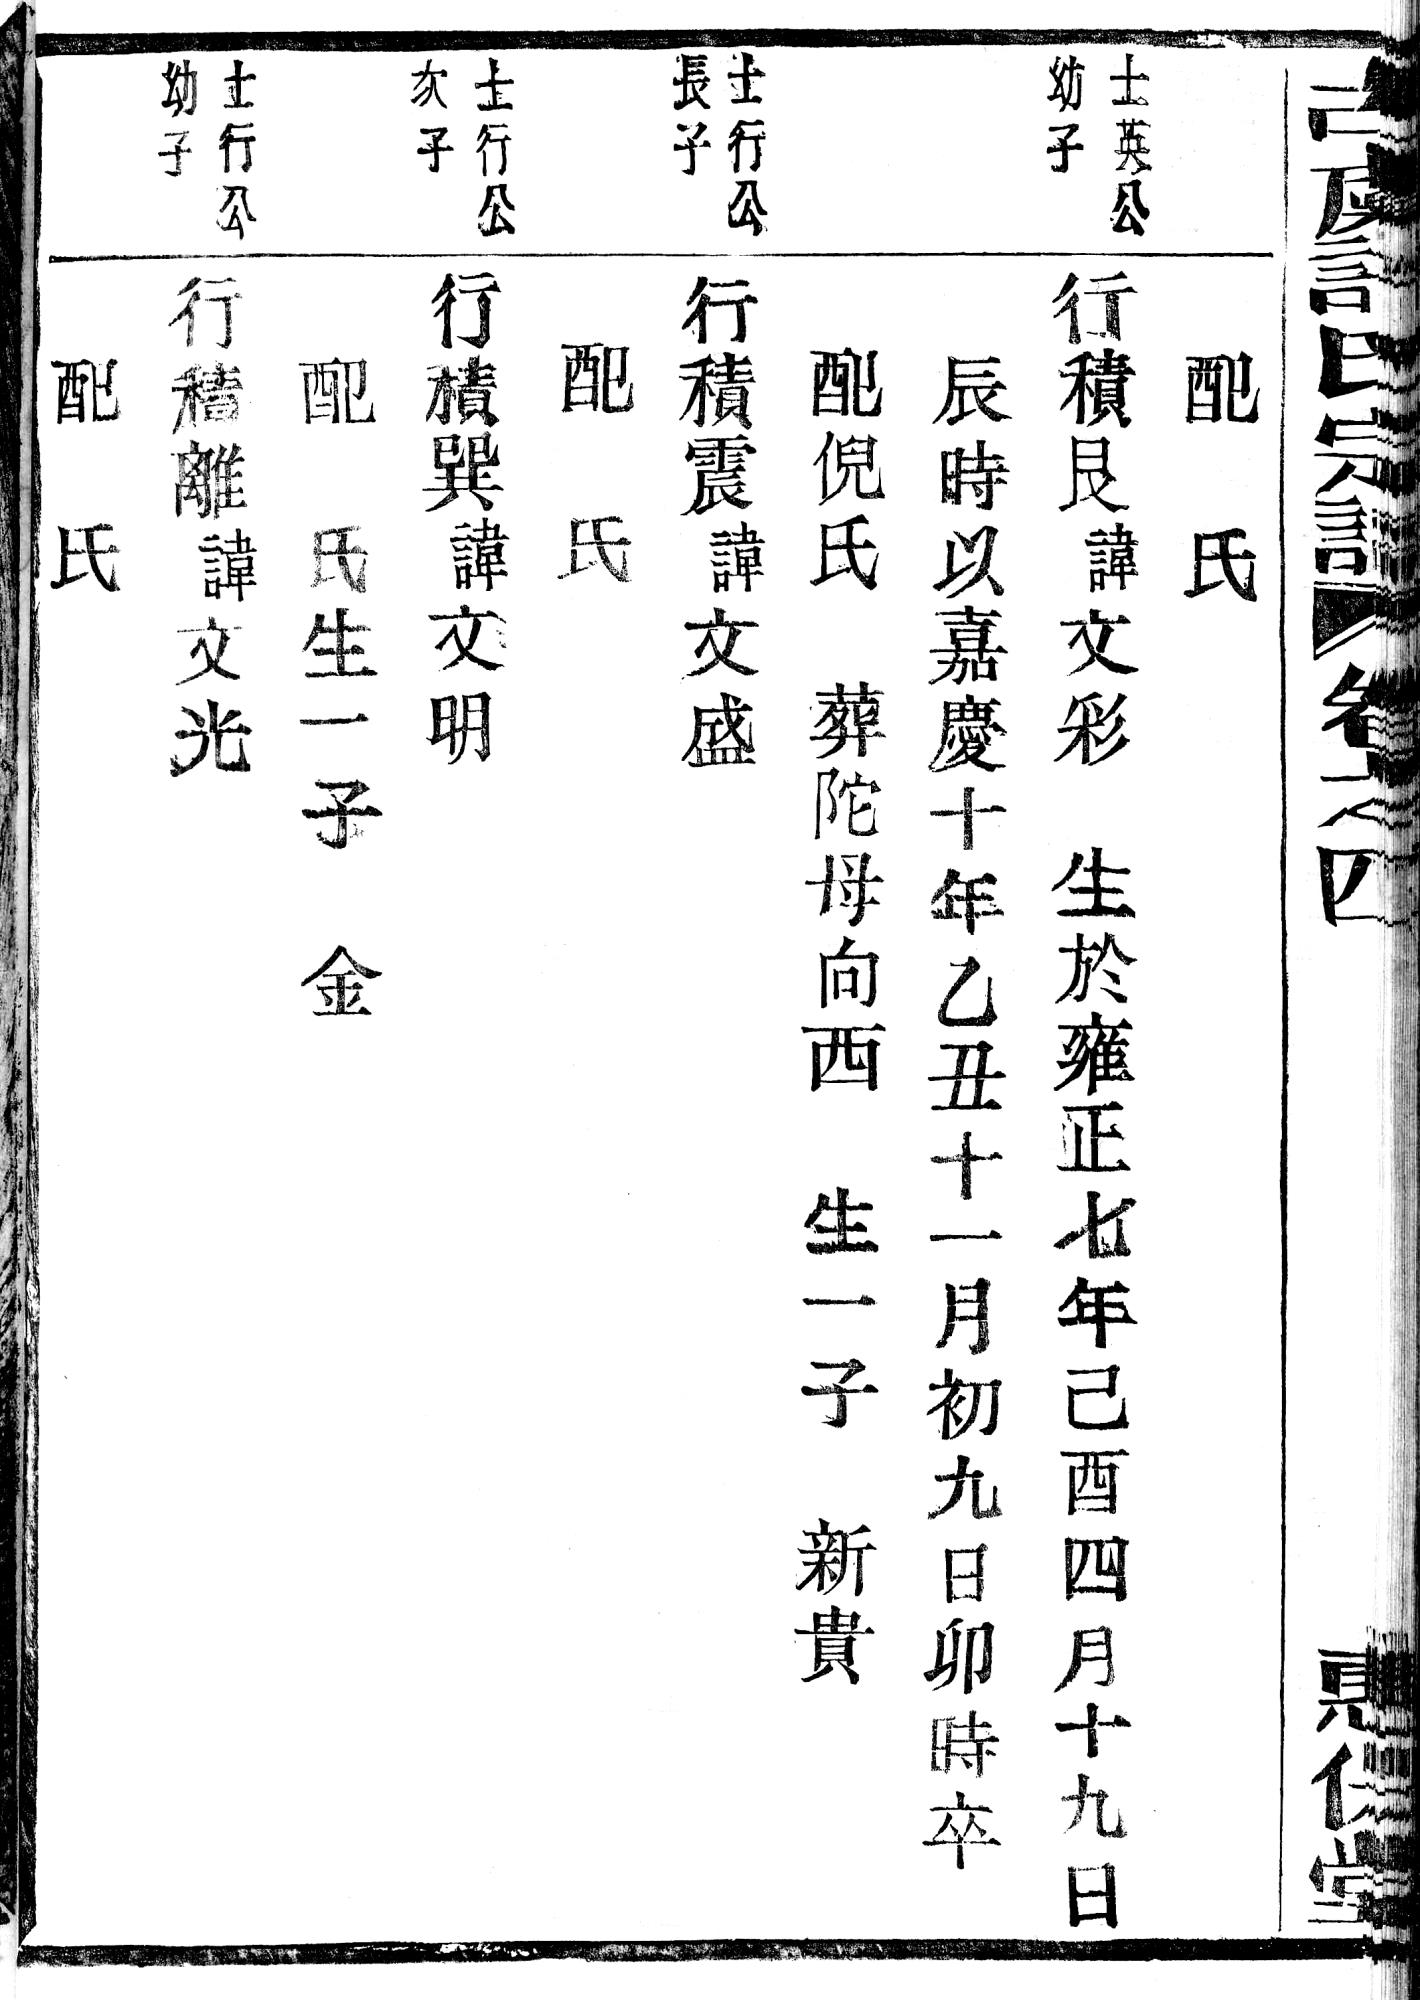 配 氏
士英公
幼子
行積艮諱文彩 生於雍正七年己酉四月十九日
辰時以嘉慶十年乙丑十一月初九日卯時卒
配倪氏 葬陀母向西 生一子 新貴
士行公
長子
行積震諱文盛
配 氏
士行公
次子
行積巽諱文明
配 氏生一子 金
士行公
幼子
行積離諱文光
配 氏